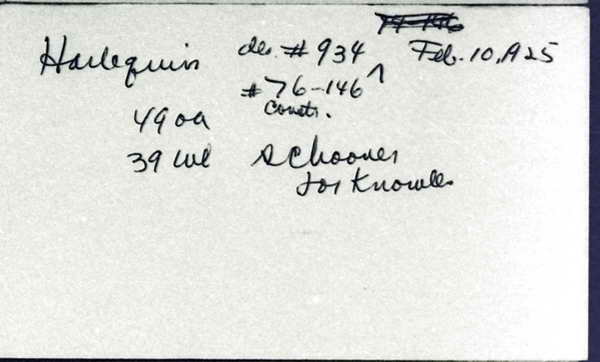 Harlequin des. #934 Feb. 10, 1925
#76-146 ^
Constr.
49 oa
39 wl schooner
for Knowles